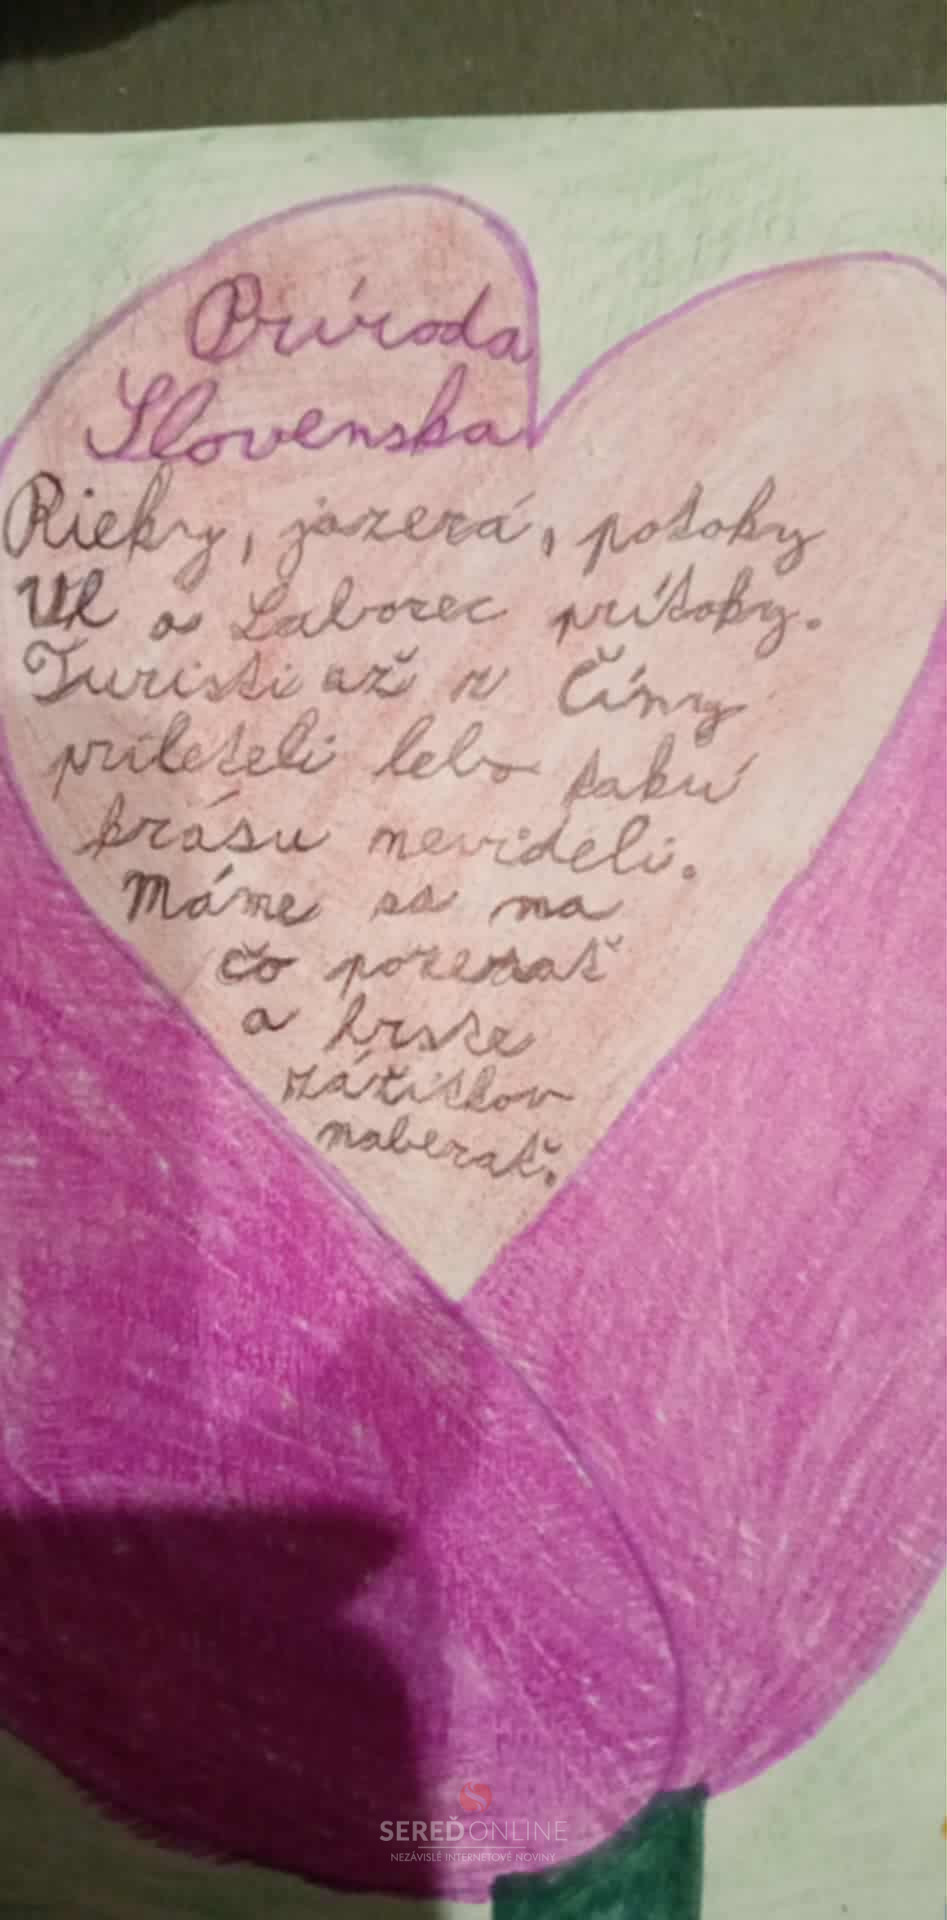 Príroda
Slovenska
Rieky, jazerá, potoky
Uh a Laborec prítoky.
Turisti až z Číny
prileteli lebo takú
krásu nevideli.
Máme sa na
čo pozerať
a hrste
zážitkov
naberať.
SEREĎONLINE
NEZÁVISLÉ INTERNETOVÉ NOVINY